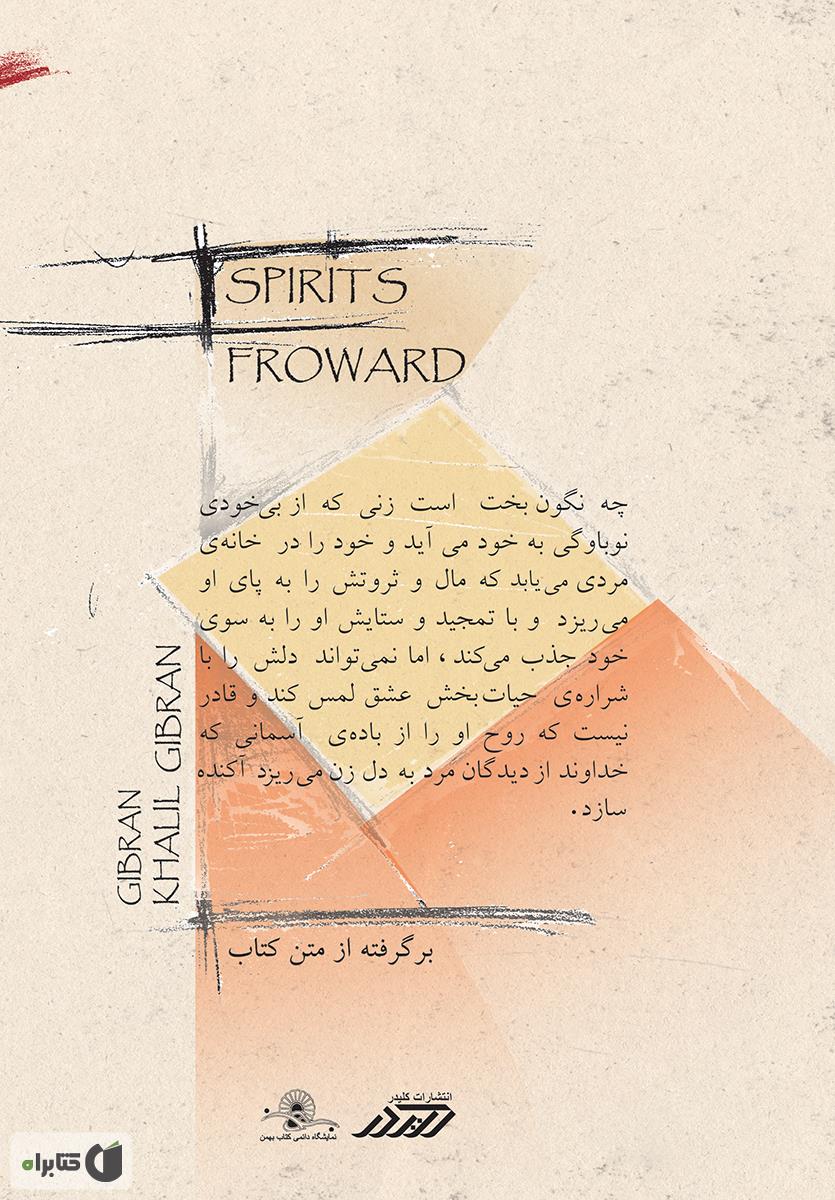 SPIRITS
FROWARD
چه نگون‌بخت است زنی که از بی‌خودی
نوباوگی به خود می آید و خود را در خانه‌ی
مردی می‌یابد که مال و ثروتش را به پای او
می‌ریزد و با تمجید و ستایش او را به سوی
خود جذب می‌کند، اما نمی‌تواند دلش را با
شراره‌ی حیات‌بخش عشق لمس کند و قادر
نیست که روح او را از باده‌ی آسمانی که
خداوند از دیدگان مرد به دل زن می‌ریزد آکنده
سازد.
GIBRAN
KHALIL GIBRAN
برگرفته از متن کتاب
انتشارات کلیدر
کلیدر
نمایشگاه دائمی کتاب بهمن
کتابراه